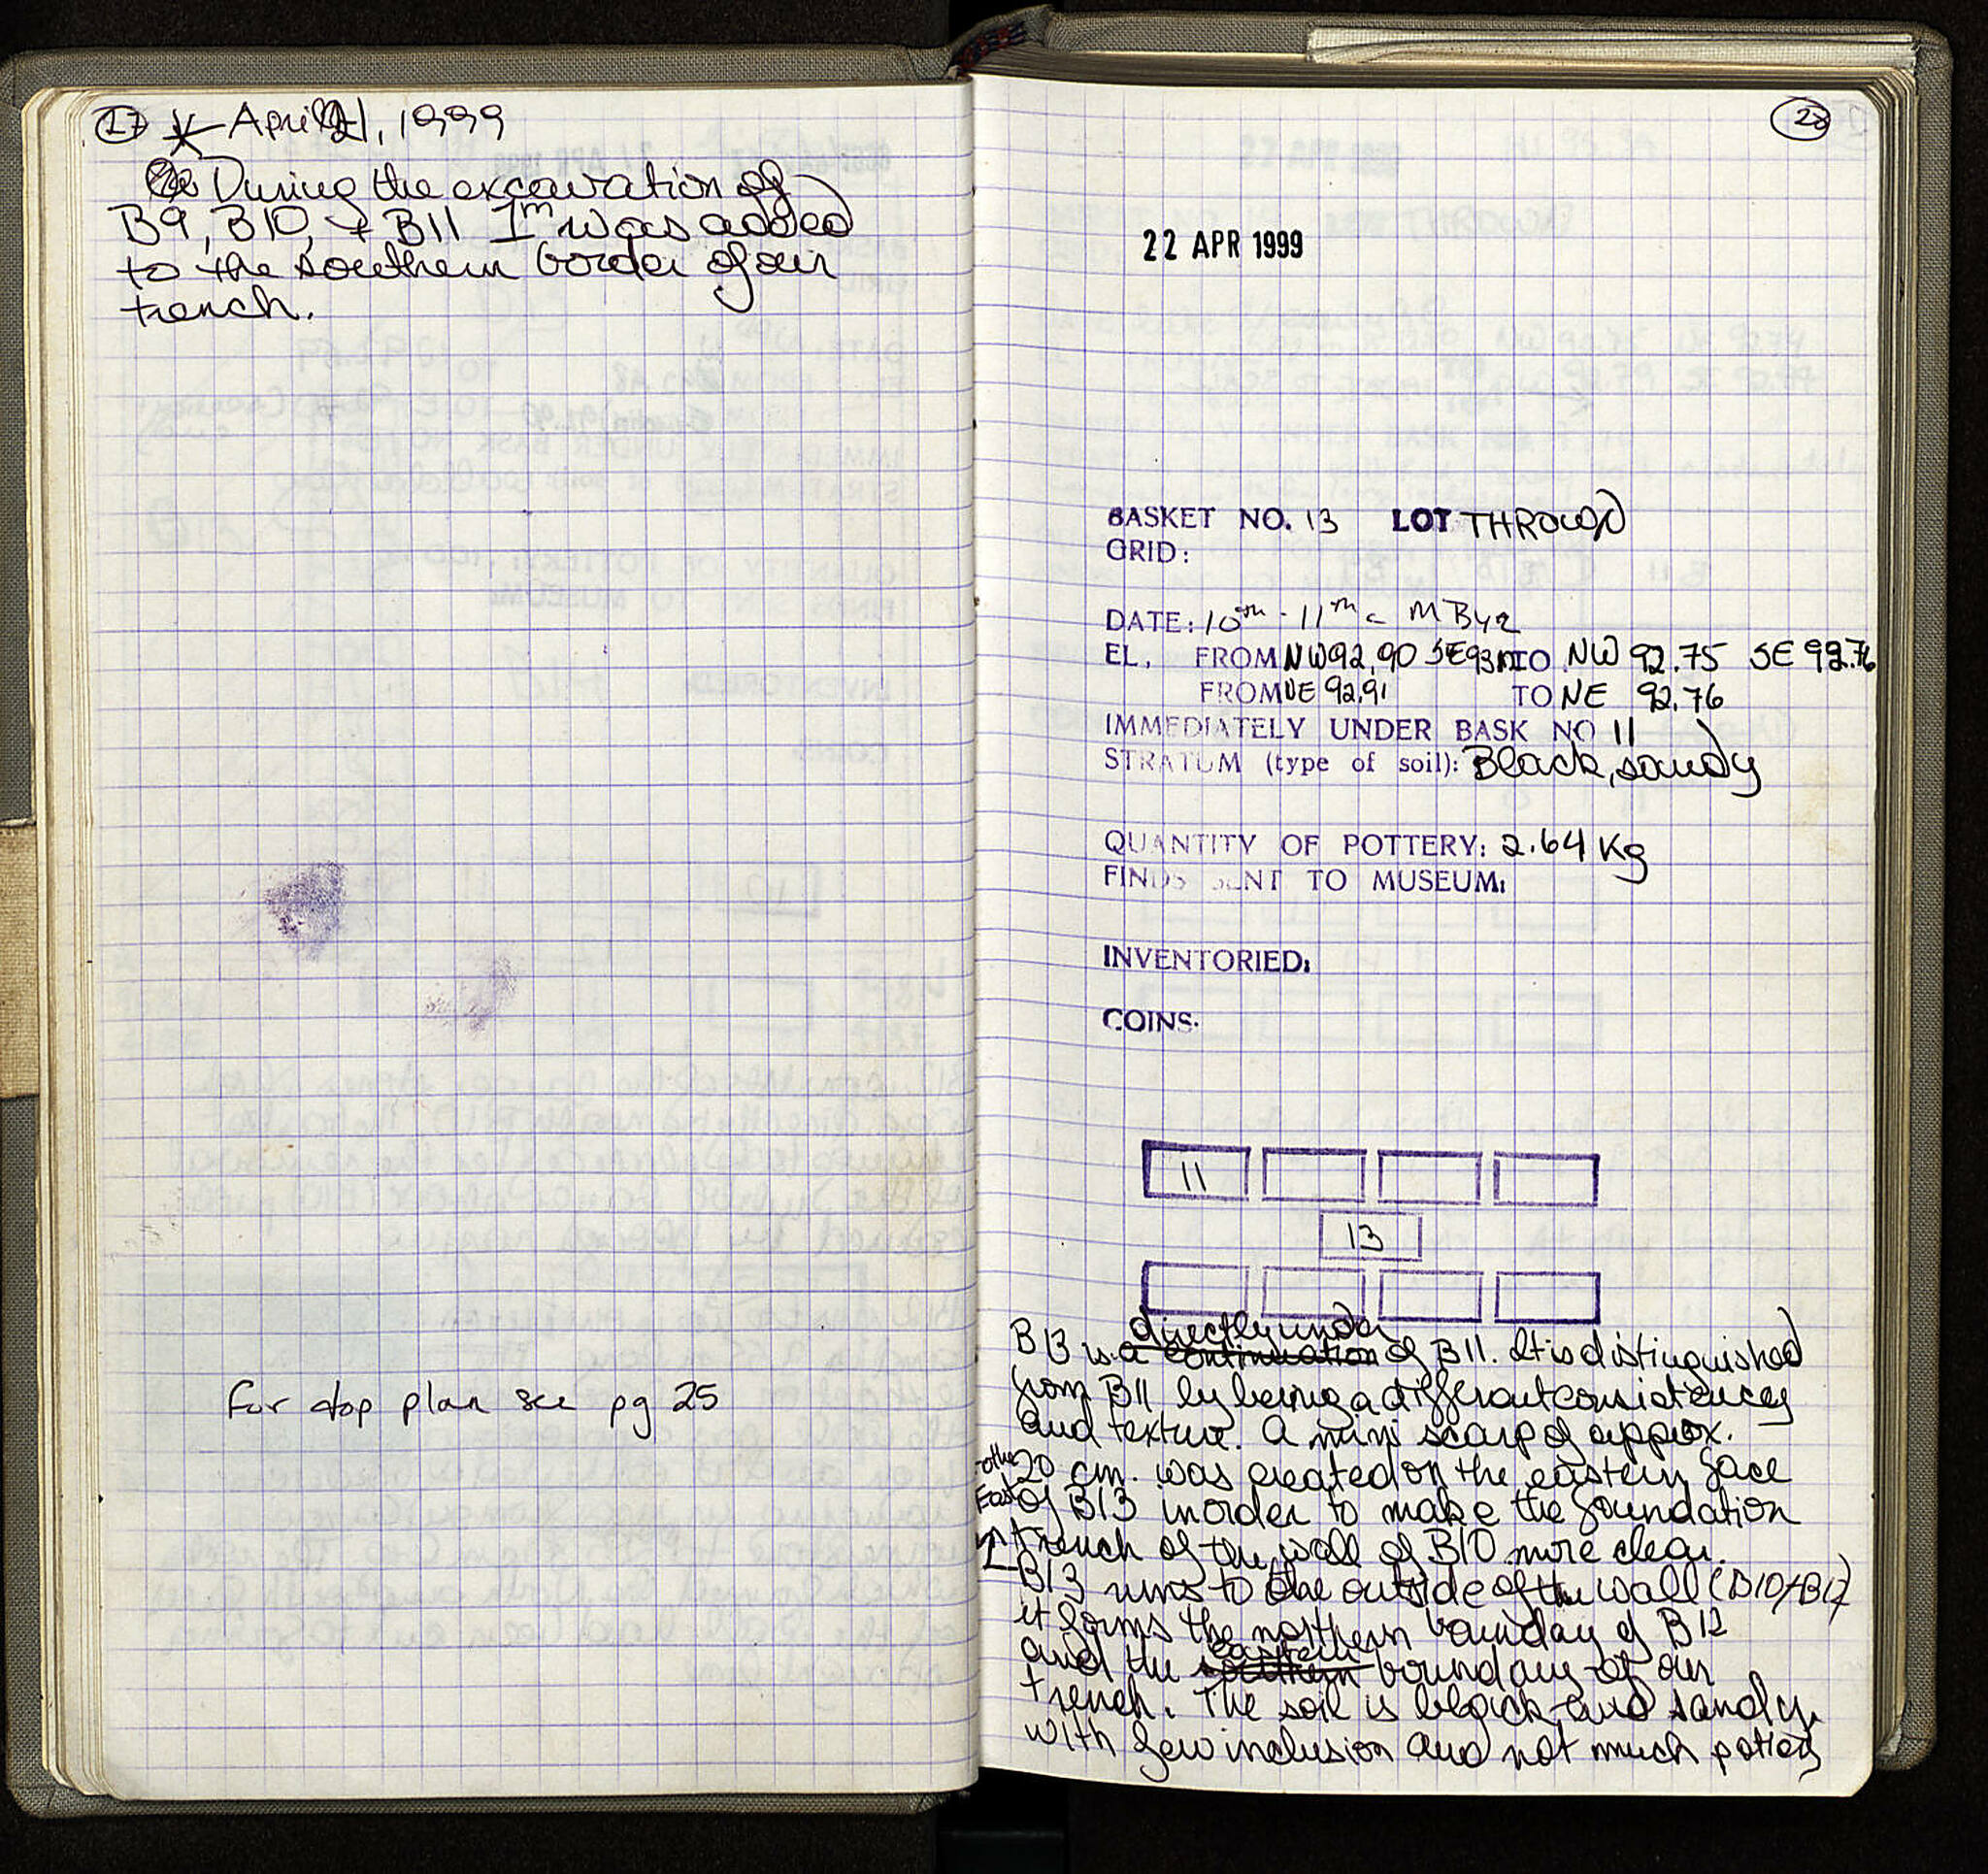 27 April 21, 1999
During the excavation of
B9, B10, + B11 1m was added
to the southern border of our
trench.
For top plan see pg 25
28
22 APR 1999
BASKET NO. 13 LOT THROWN
GRID:
DATE: 10th - 11th c M Byz
EL. FROM NW 92.90 SE 93 TO NW 92.75 SE 92.76
FROM NE 92.91 TO NE 92.76
IMMEDIATELY UNDER BASK NO 11
STRATUM (type of soil): Black, sandy
QUANTITY OF POTTERY: 2.64 Kg
FINDS SENT TO MUSEUM:
INVENTORIED:
COINS.
11
13
directly under
B13 is a continuation of B11. It is distinguished
from B11 by being a different consistencey
and texture. A mini scarp of approx.
other 20 cm. was created on the eastern face
East of B13 in order to make the foundation
trench of the wall of B10 more clear.
B13 runs to the outside of the wall (B10+B12)
it forms the northern bounday of B12
eastern
and the southern boundary of our
trench. The soil is black and sandy
with few inclusion and not much pottery